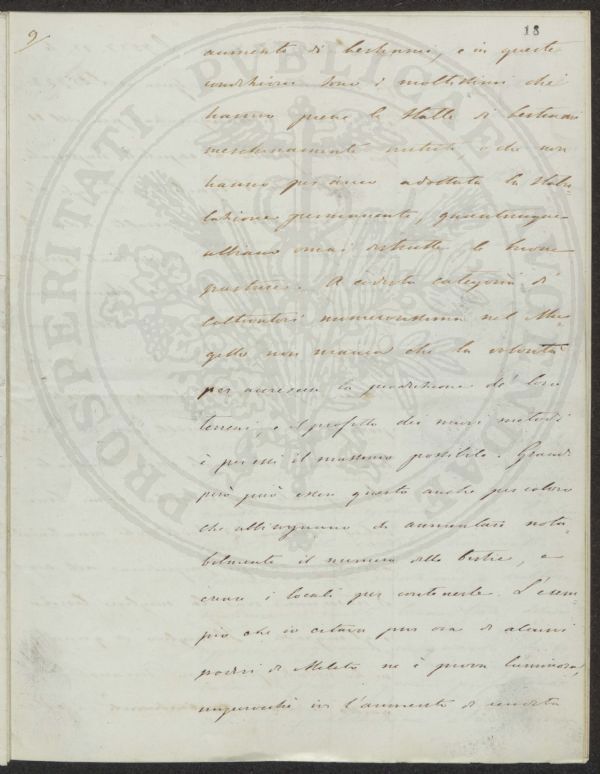 9
18
aumento di bestiami, e in queste
condizioni sono i moltissimi che
hanno piene le stalle di bestiami
meschinamente nutriti, e che non
hanno per anco adottata la stabu-
lazione permanente, quantunque
abbiano omai distrutte le buone
pasture. A codesta categoria di
coltivatori numerosissima nel Mu-
gello non manca che la volontà
per accrescere la produzione de' loro
terreni, e il profitto dei nuovi metodi
è per essi il massimo possibile. Grande
però può essere questo anche per coloro
che abbisognano di aumentare nota-
bilmente il numero delle bestie, e
creare i locali per contenerle. L'esem-
pio che io citava pur ora di alcuni
poderi di Meleto ne è prova luminosa,
imperocchè ivi l'aumento di rendita
PROSPERITATI PUBLICAE AUGENDAE